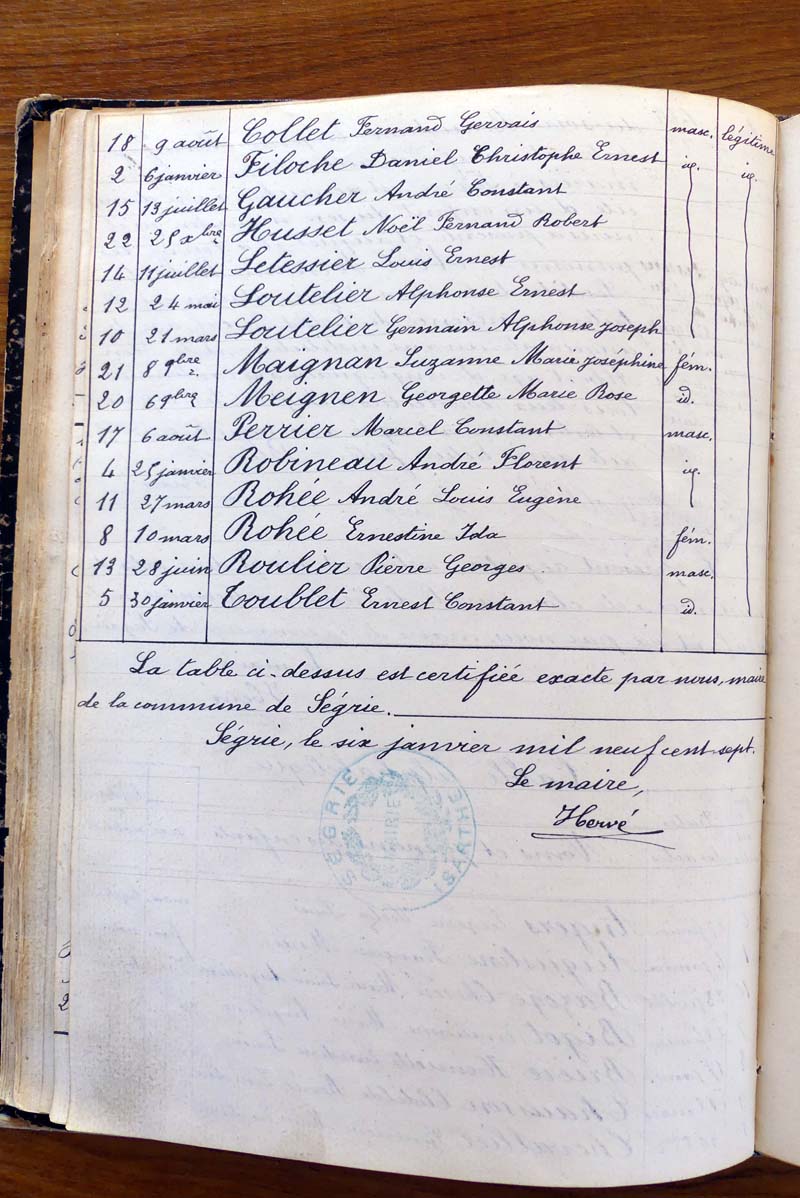 18 9 août Collet Fernand Gervais masc. légitime
2 6 janvier Filoche Daniel Christophe Ernest id. id.
15 13 juillet Gaucher André Constant
22 25 xbre Husset Noël Fernand Robert
14 11 juillet Letessier Louis Ernest
12 24 mai Loutelier Alphonse Ernest
10 21 mars Loutelier Germain Alphonse Joseph
21 8 9bre Maignan Suzanne Marie Joséphine fém.
20 6 9bre Meignen Georgette Marie Rose id.
17 6 août Perrier Marcel Constant masc.
4 25 janvier Robineau André Florent id.
11 27 mars Rohée André Louis Eugène
8 10 mars Rohée Ernestine Ida fém.
13 28 juin Roulier Pierre Georges masc.
5 30 janvier Toublet Ernest Constant id.
La table ci-dessus est certifiée exacte par nous, maire
de la commune de Ségrie.
Ségrie, le six janvier mil neuf cent sept.
Le maire,
Hervé
SÉGRIE
MAIRIE
(SARTHE)